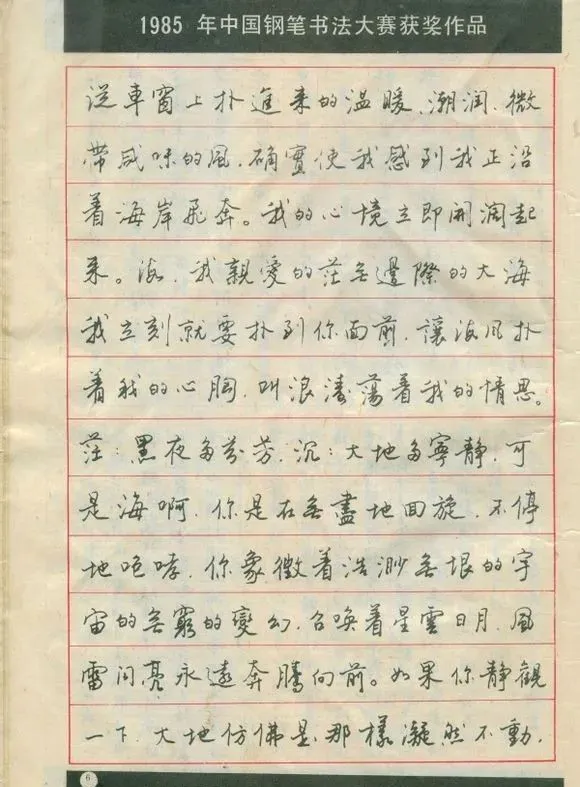 1985 年中国钢笔书法大赛获奖作品
从車窗上扑進来的温暖、潮润、微
带咸味的風，确實使我感到我正沿
着海岸飛奔。我的心境立即開阔起
来。海，我親愛的茫無邊際的大海
我立刻就要扑到你面前，讓海风扑
着我的心胸，叫浪涛蕩着我的情思。
茫：黑夜多芬芳，沉：大地多寧静，可
是海啊，你是在無盡地回旋，不停
地咆哮，你象徵着浩渺無垠的宇
宙的無窮的變幻，召唤着星雲日月，風
雷闪亮永遠奔騰向前。如果你静観
一下，大地仿佛是那樣凝然不動，
6